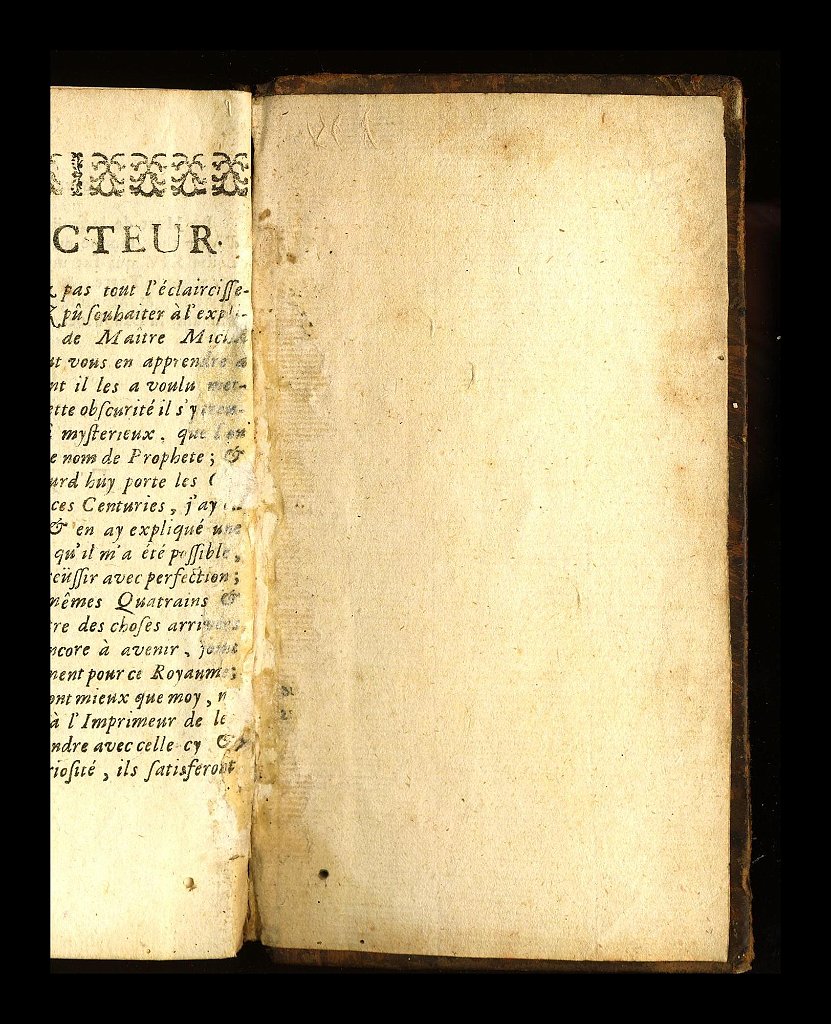 CTEUR.
pas tout l'éclairciſſe-
pû ſouhaiter à l'expli-
de Maître Mich
ut vous en apprendre a
nt il les a voulu met-
ette obſcurité il s'y
myſterieux, que l'on
e nom de Prophete; &
urd huy porte les
ces Centuries, j'ay
& en ay expliqué une
qu'il m'a été poſſible,
eüſſir avec perfection;
mêmes Quatrains &
re des choſes arrivées,
ncore à avenir,
ment pour ce Royaume;
ont mieux que moy,
à l'Imprimeur de le
ndre avec celle cy &
rioſité, ils ſatisferont